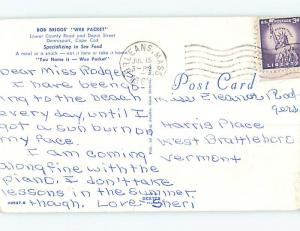 BOB BRIGGS' "WEE PACKET"
Lower County Road and Depot Street
Dennisport, Cape Cod
Specializing in Sea Food
A meal or a snack — eat it here or take it home
"You Name it — Wee Packet"
ORLEANS, MASS.
JUL 15
U.S. POSTAGE 3¢
LIBERTY
Post Card
Dear Miss Rodgers
I have been go-
ing to the beach
every day, until I
got a sun burn on
my face.
I am coming
along fine with the
piano. I don't take
lessons in the summer,
though. Love- Sheri
Miss Eleanor Rod
gers
Harris Place
West Brattleboro
Vermont
DEXTER